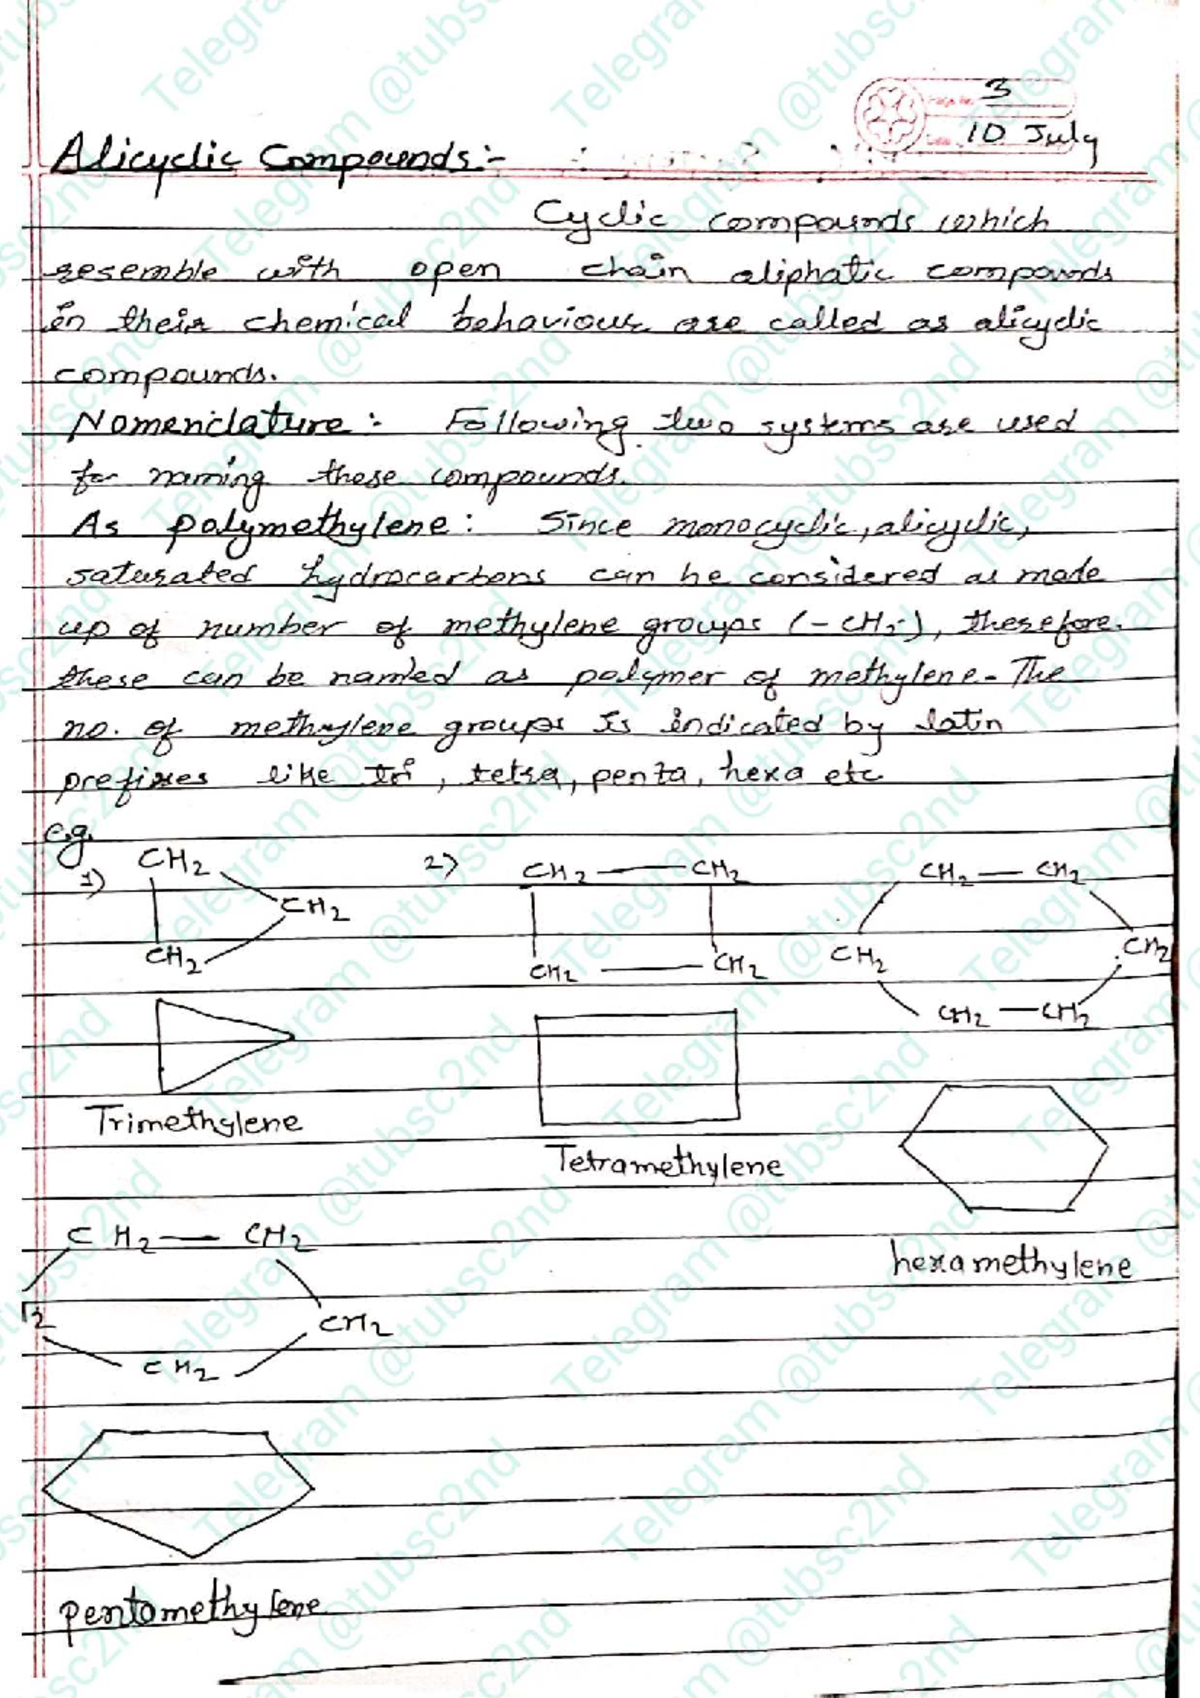 3
10 July
Alicyclic Compounds:-
Cyclic compounds which
resemble with open chain aliphatic compounds
in their chemical behaviour are called as alicyclic
compounds.
Nomenclature: Following two systems are used
for naming these compounds.
As polymethylene: Since monocyclic, alicyclic,
saturated hydrocarbons can be considered as made
up of number of methylene groups (-CH2-), therefore
these can be named as polymer of methylene. The
no. of methylene groups is indicated by latin
prefixes like tri, tetra, penta, hexa etc
e.g.
1) CH2 CH2 CH2
2) CH2 — CH2
CH2 — CH2
CH2 — CH2
CH2 CH2
CH2 — CH2
Trimethylene
Tetramethylene
hexamethylene
CH2 — CH2
H2 CH2
CH2
pentomethylene
Telegram @tubsc2nd